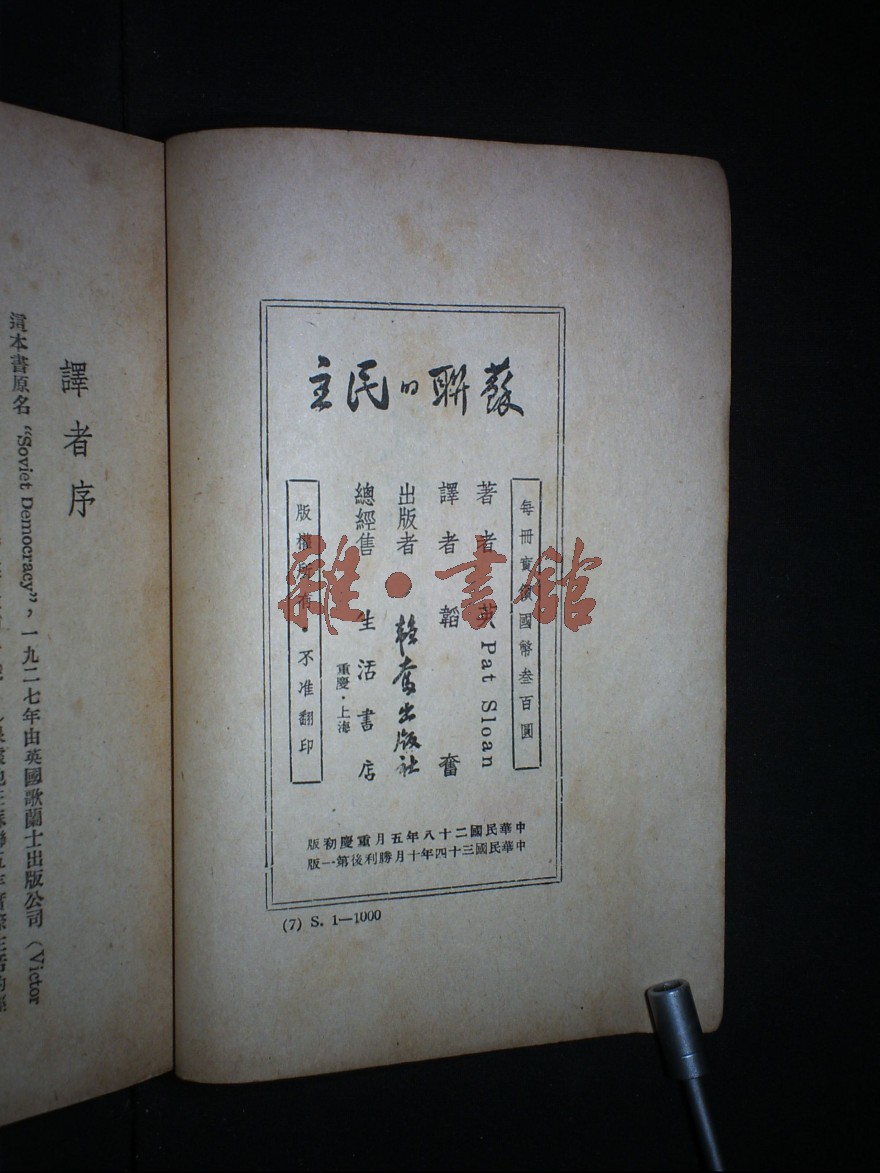 蘇聯的民主
每冊實價國幣叁百圓
著者 英 Pat Sloan
譯者 韜奮
出版者 韜奮出版社
總經售 生活書店
重慶・上海
版權所有・不准翻印
中華民國二十八年五月重慶初版
中華民國三十四年十月勝利後第一版
(7) S. 1—1000
雜・書館
譯者序
這本書原名“Soviet Democracy”，一九二七年由英國歌蘭士出版公司（Victor